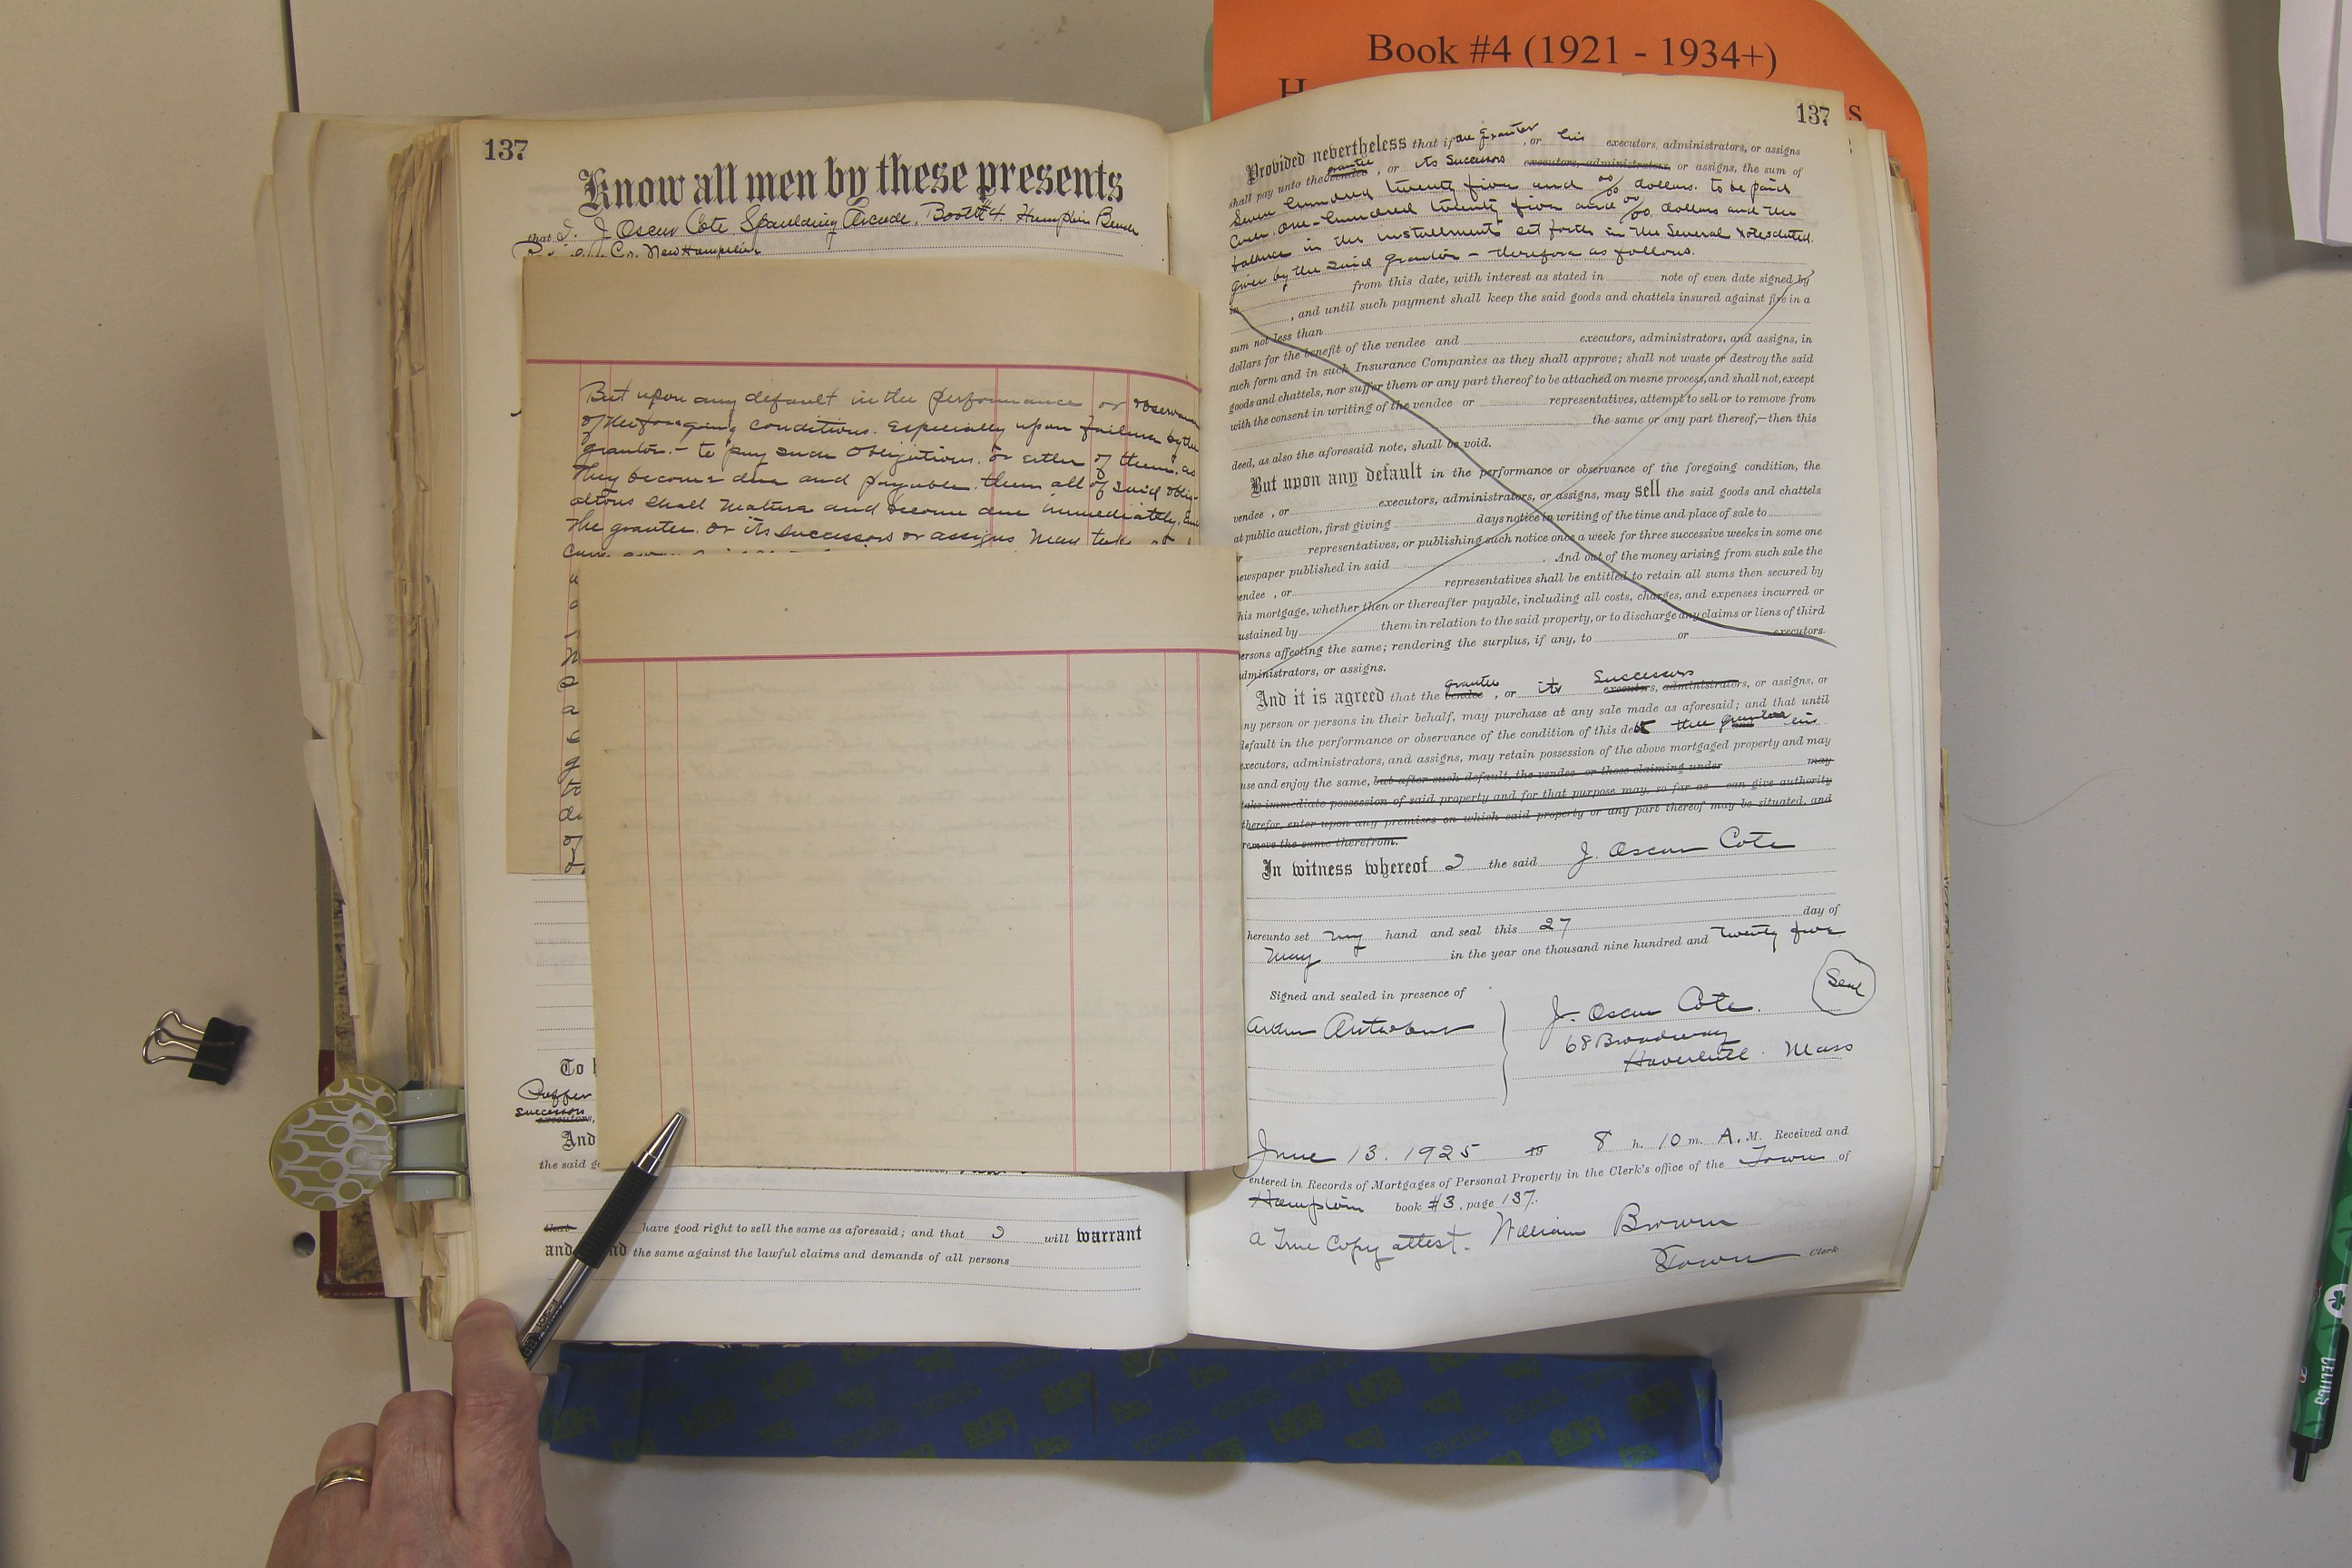 Book #4 (1921 - 1934+)
H
s
137
Know all men by these presents
that I. J. Oscar Cote, Spaulding Arcade, Booth #4. Hampton Beach
Co. New Hampshire
But upon any default in the performance or observance
of the foregoing conditions. Especially upon failure by the
grantor. - to pay such obligations. or either of them. as
They become due and payable. them all of said oblig-
ations shall mature and become due immediately. And
the grantee. or its successors or assigns may take
To h
Puffer
successors
executors,
And
the said g
that have good right to sell the same as aforesaid; and that I will warrant
and the same against the lawful claims and demands of all persons
137
Provided nevertheless that if the grantor , or his executors, administrators, or assigns
grantee
shall pay unto the vendee , or its Successors executors, administrators, or assigns, the sum of
Seven hundred twenty five and 00/00 dollars. to be paid
one-hundred twenty five and 00/00 dollars and the
balance in the installments set forth in the several notes dated.
given by the said grantor - therefore as follows.
from this date, with interest as stated in note of even date signed by
in , and until such payment shall keep the said goods and chattels insured against fire in a
sum not less than
dollars for the benefit of the vendee and executors, administrators, and assigns, in
such form and in such Insurance Companies as they shall approve; shall not waste or destroy the said
goods and chattels, nor suffer them or any part thereof to be attached on mesne process, and shall not, except
with the consent in writing of the vendee or representatives, attempt to sell or to remove from
the same or any part thereof,—then this
deed, as also the aforesaid note, shall be void.
But upon any default in the performance or observance of the foregoing condition, the
vendee , or executors, administrators, or assigns, may sell the said goods and chattels
at public auction, first giving days notice in writing of the time and place of sale to
r representatives, or publishing such notice once a week for three successive weeks in some one
ewspaper published in said . And out of the money arising from such sale the
endee , or representatives shall be entitled to retain all sums then secured by
his mortgage, whether then or thereafter payable, including all costs, charges, and expenses incurred or
ustained by them in relation to the said property, or to discharge any claims or liens of third
ersons affecting the same; rendering the surplus, if any, to or executors.
dministrators, or assigns.
grantee Successors
And it is agreed that the vendee , or its executors, administrators, or assigns, or
ny person or persons in their behalf, may purchase at any sale made as aforesaid; and that until
default in the performance or observance of the condition of this
executors, administrators, and assigns, may retain possession of the above mortgaged property and may
use and enjoy the same, but after such default, the vendee or those claiming under may
take immediate possession of said property and for that purpose may, so far as can give authority
therefor, enter upon any premises on which said property or any part thereof may be situated, and
remove the same therefrom.
In witness whereof I the said J. Oscar Cote
hereunto set my hand and seal this 27 day of
May in the year one thousand nine hundred and twenty five
Signed and sealed in presence of
Seal
J. Oscar Cote.
68 Broadway
Haverhill. Mass
June 13. 1925 19 8 h. 10 m. A. M. Received and
entered in Records of Mortgages of Personal Property in the Clerk's office of the Town of
Hampton book #3, page 137.
A True Copy attest. William Brown
Town Clerk